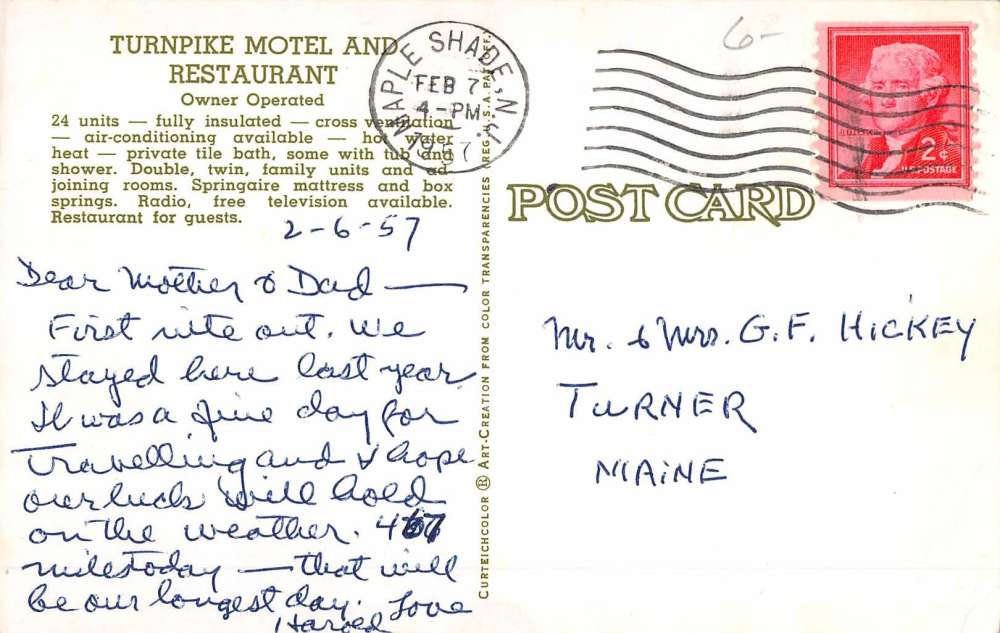 TURNPIKE MOTEL AND
RESTAURANT
Owner Operated
24 units — fully insulated — cross ventilation
— air-conditioning available — hot water
heat — private tile bath, some with tub and
shower. Double, twin, family units and ad-
joining rooms. Springaire mattress and box
springs. Radio, free television available.
Restaurant for guests.
2-6-57
Dear Mother & Dad —
First nite out. We
stayed here last year
It was a fine day for
Travelling and I hope
our luck will hold
on the weather.
miles today — that will
be our longest day. Love
Harold
MAPLE SHADE, N.J.
FEB 7
4-PM
1957
CURTEICHCOLOR ® ART-CREATION FROM COLOR TRANSPARENCIES REG. U.S.A. PAT. OFF.
6-
2¢
U.S. POSTAGE
POST CARD
Mr. & Mrs. G.F. HICKEY
TURNER
MAINE